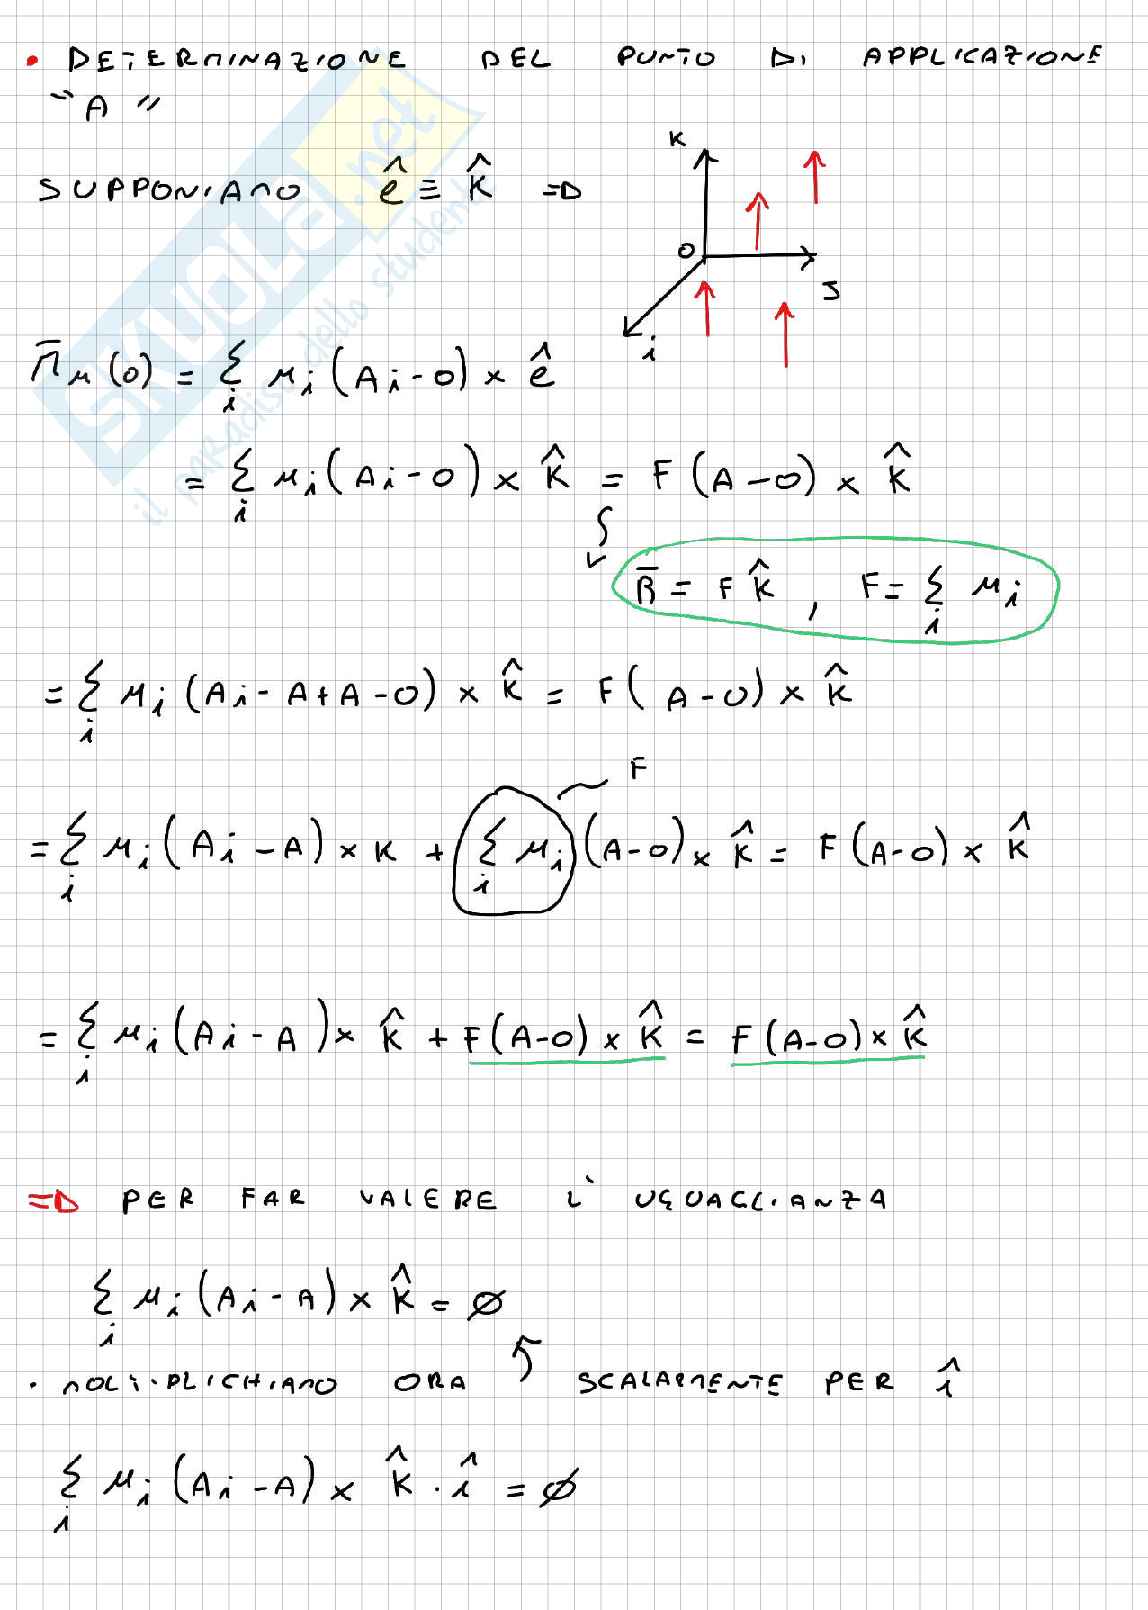 • DETERMINAZIONE DEL PUNTO DI APPLICAZIONE
"A"
SUPPONIAMO ê ≡ k̂ =D
K
O
J
i
M̄μ(O) = Σi μi (Ai-O) × ê
= Σi μi (Ai-O) × k̂ = F (A-O) × k̂
R̄ = F k̂ , F = Σi μi
= Σi μi (Ai - A + A - O) × k̂ = F (A-O) × k̂
F
= Σi μi (Ai - A) × K + Σi μi (A-O) × k̂ = F (A-O) × k̂
= Σi μi (Ai - A) × k̂ + F (A-O) × k̂ = F (A-O) × k̂
=D PER FAR VALERE L' UGUAGLIANZA
Σi μi (Ai - A) × k̂ = ∅
• MOLTIPLICHIAMO ORA SCALARMENTE PER î
Σi μi (Ai - A) × k̂ · î = ∅
SKUOLA.net
il paradiso dello studente